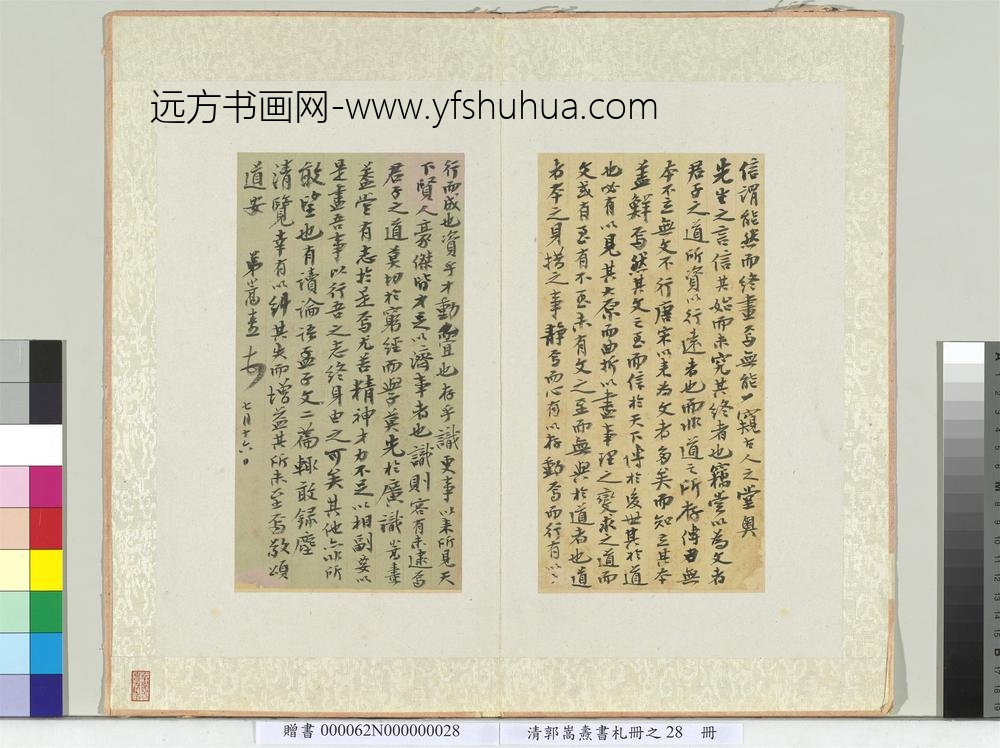 远方书画网-www.yfshuhua.com
信謂能然而終畫焉無能一窺古人之堂奧
先生之言信其始而未究其終者也竊嘗以為文者
君子之道所資以行遠者也而非道之所存傳曰無
本不立無文不行唐宋以來為文者多矣而知立其本
蓋鮮焉然其文之至而信於天下傳於後世其於道
也必有以見其大原而曲折以盡事理之變求之道而
文或有至有不至未有文之至而無與於道者也道
者本之身措之事靜焉而心有以存動焉而行有以
行而成也資乎才動
也存乎識更事以來所見天
下賢人豪傑皆才足以濟事者也識則容有未逮焉
君子之道莫切於窮經而學莫先於廣識
蓋嘗有志於是焉尤苦精神才力不足以相副妄以
是盡吾事以行吾之志終身由之可矣其他亦非所
敢望也有讀論語孟子文二篇輒敢錄塵
清覽幸有以糾其失而增益其所未至焉敬頌
道安
弟嵩燾
七月十六日
贈書 000062N000000028
清郭嵩燾書札冊之 28 冊